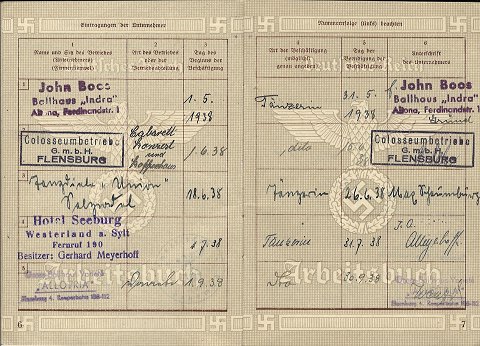 Eintragungen der Unternehmer
1
Name und Sitz des Betriebes
(Unternehmers)
2
Art des Betriebes
oder der
Betriebsabteilung
3
Tag des
Beginns der
Beschäftigung
1
John Boos
Ballhaus „Indra"
Altona, Ferdinandstr. 1
1.5.
1938
2
Colosseumbetriebe
G. m. b. H.
FLENSBURG
Kabarett
Konzert
und
Kaffeehaus
1.6.38
3
Tanzdiele "Union"
Salzwedel
18.6.38
4
Hotel Seeburg
Westerland a. Sylt
Fernruf 190
Besitzer: Gerhard Meyerhoff
1.7.38
5
"ALLOTRIA"
Hamburg 4, Reeperbahn
1.9.38
6
Nummernfolge (links) beachten
4
Art der Beschäftigung
(möglichst
genau angeben)
5
Tag der
Beendigung der
Beschäftigung
6
Unterschrift
des Unternehmers
Tänzerin
31.5.
1938
John Boos
Ballhaus „Indra"
Altona, Ferdinandstr. 1
dito
38
Colosseumbetriebe
G. m. b. H.
FLENSBURG
Tänzerin
26.6.38
Max
Tänzerin
31.7.38
Dto
38
Hamburg 4, Reeperbahn
Arbeitsbuch
7